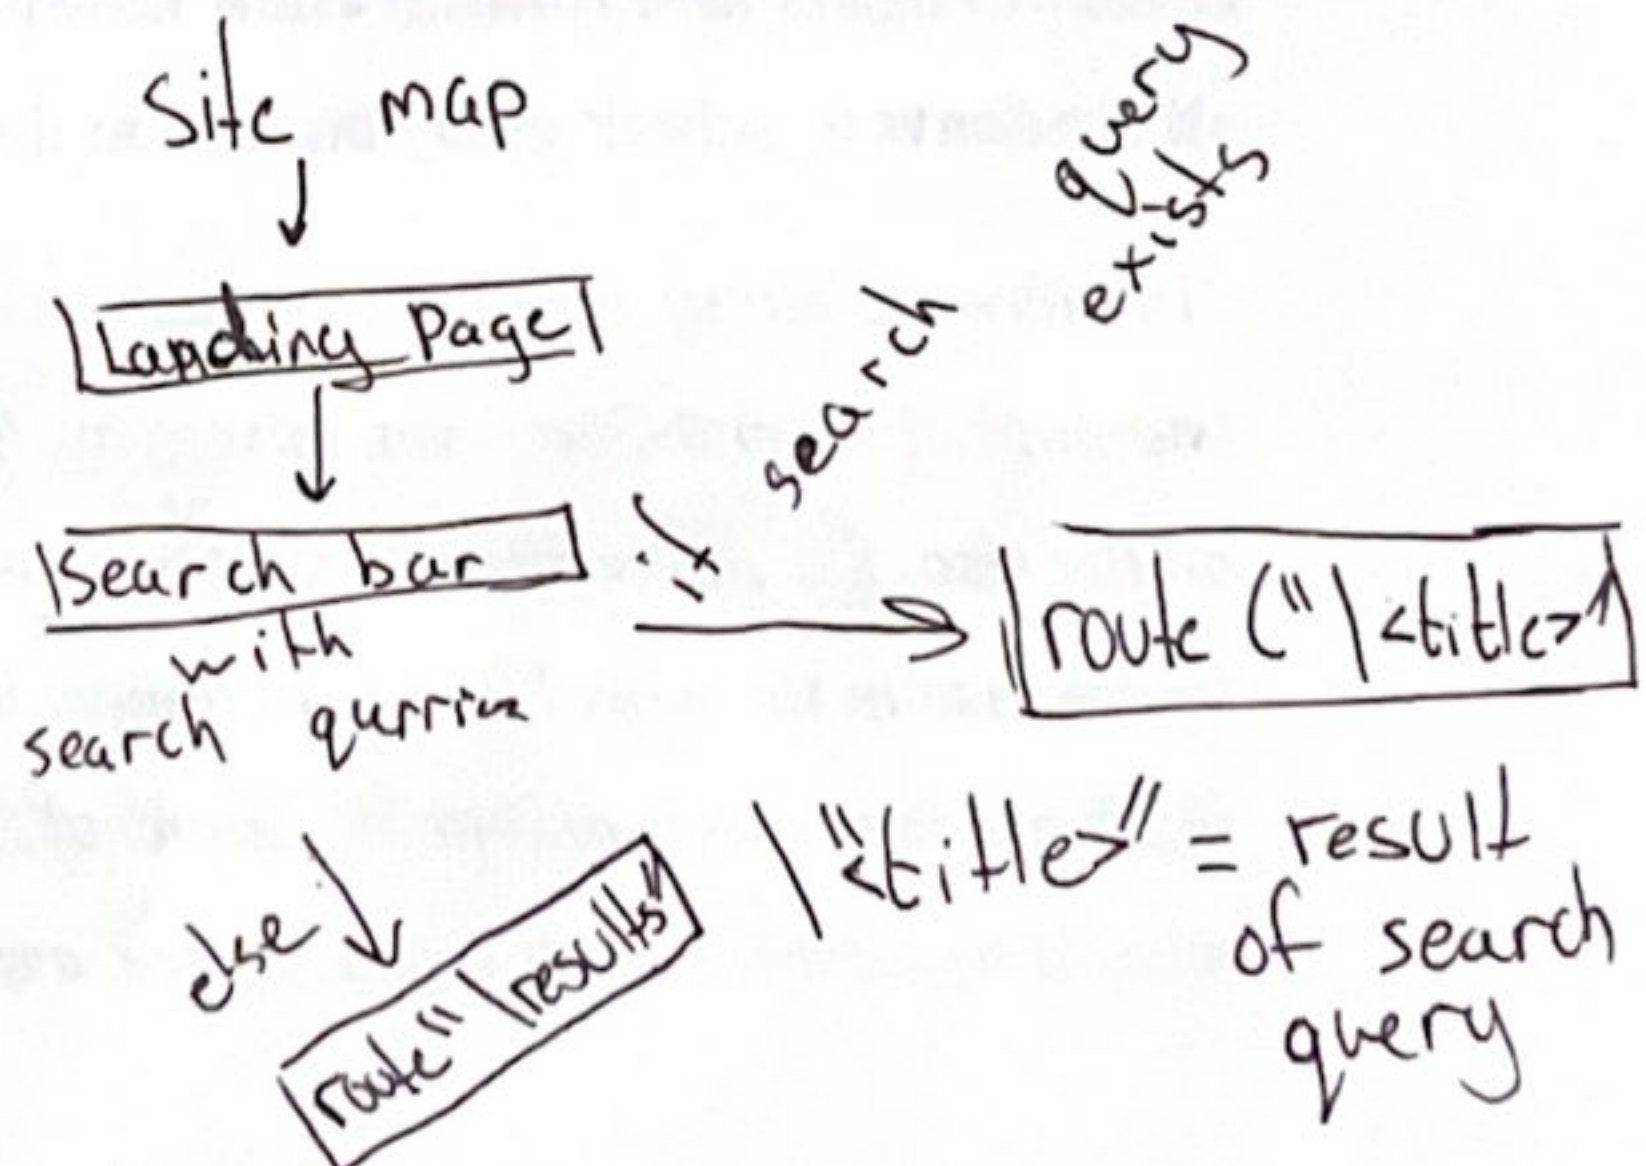 Site map
Landing Page
Search bar
with
search qurries
if search query
exists
route ("\<title>"
\"<title>" = result
of search
query
else
route "\results"